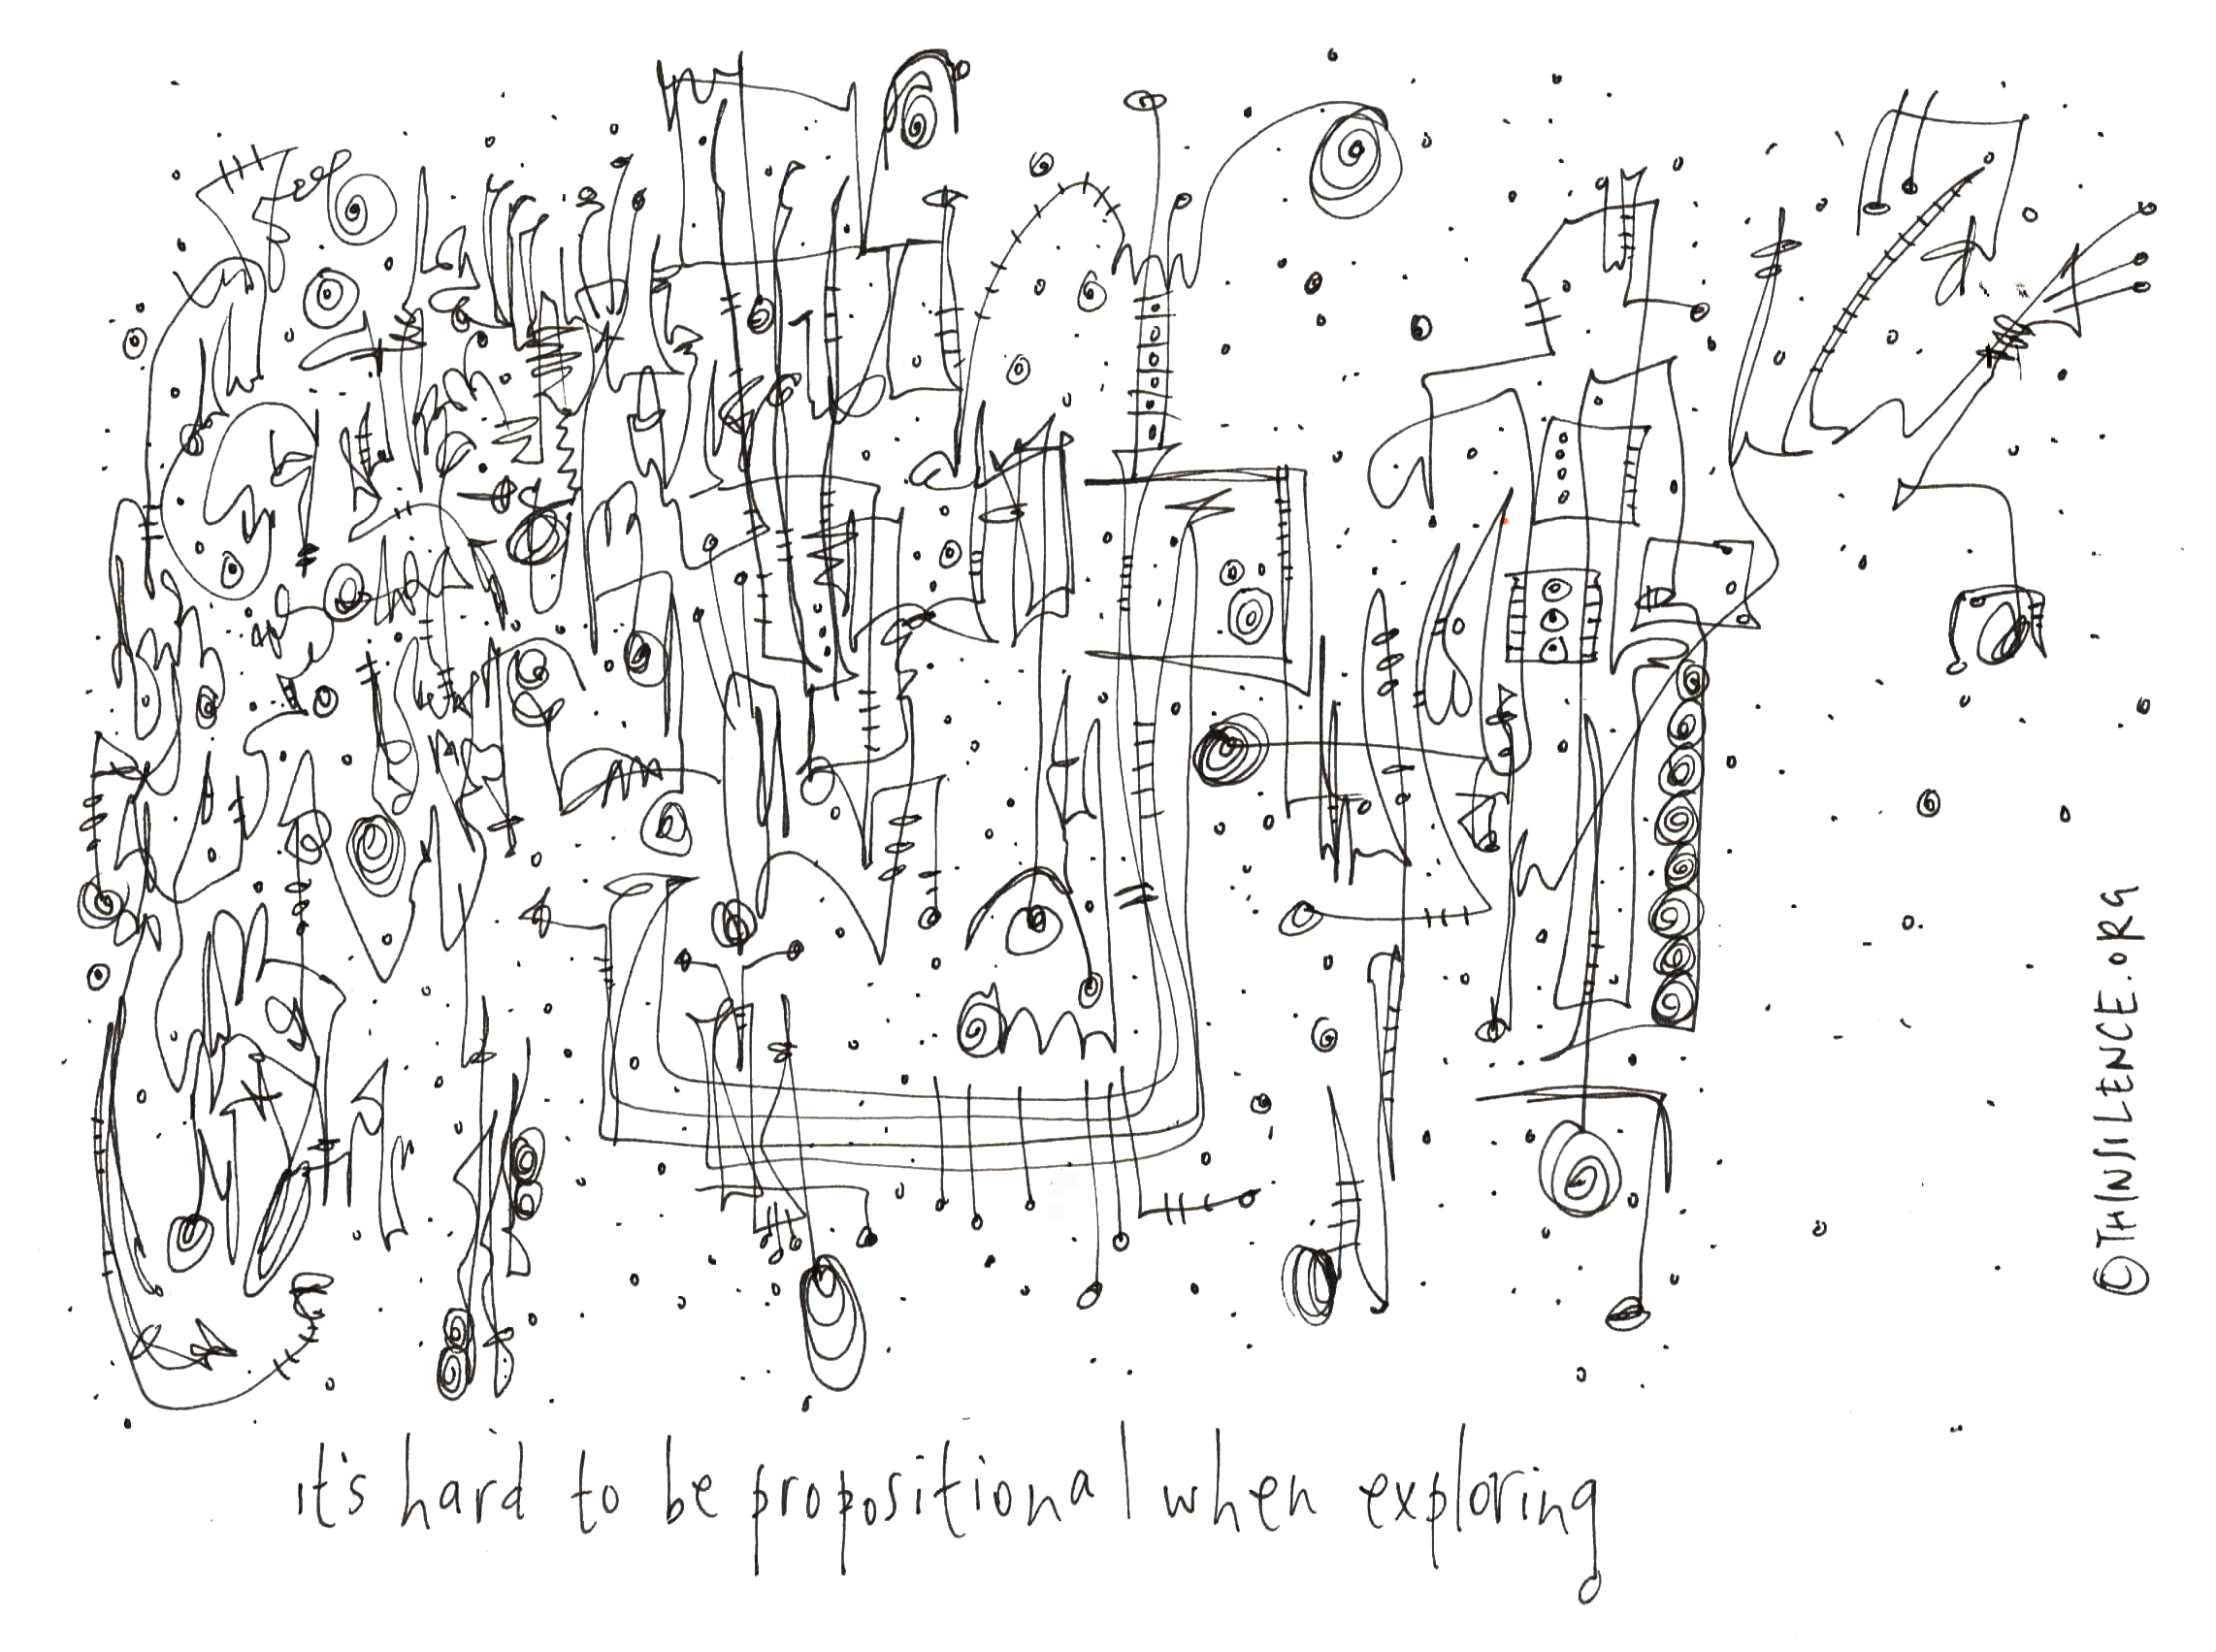 it's hard to be propositional when exploring
©THINSILENCE.ORG